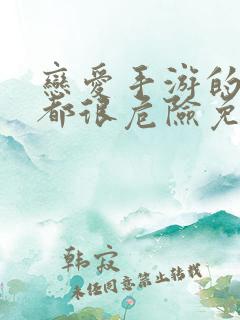 戀愛手游的
都很危險免
韩寂
未经同意禁止转载